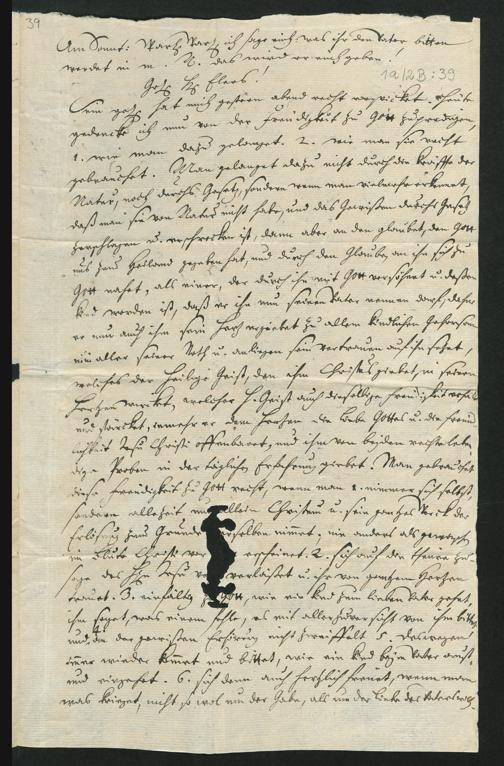 39
Am Sonnt: Warl. Warl. ich sage euch: was ihr den Vater bitten
werdet in m. N. das wird er euch geben.
1a/2B:39
H. Elers!
hat mich gestern abend recht erquicket. heute
gedencke ich nun von der Freudigkeit zu Gott zu predigen,
1. wie man dazu gelanget. 2. wie man sie recht
gebrauchet. Man gelanget dazu nicht durch die Kräffte der
Natur, noch durchs Gesetz, sondern wenn man vielmehr erkennet,
daß man sie von Natur nicht habe, und das Gewissen durchs Gesetz
zerschlagen u. erschrocken ist, dann aber an den glaubet, den Gott
uns zum Heiland gegeben hat, und durch den Glauben an ihn sich zu
Gott nahet, als einer, der durch ihn mit Gott versöhnet u. dessen
Kind worden ist, daß er ihn nun seinen Vater nennen darf, daher
er nun auch ihm sein Hertz ergiebet zu allem kindlichen Gehorsam
in aller seiner Noth u. anliegen sein vertrauen auf ihn setzet,
welches der Heilige Geist, den ihm Christus giebet, in seinem
Hertzen wircket, welcher H. Geist auch dieselbige freudigkeit
und stärcket, immehr er dem Hertzen die Liebe Gottes u. die freund
lichkeit Jesu Christi offenbaret, und ihm von beiden
dige Proben in der täglichen Erfahrung giebet. Man gebrauchet
diese freudigkeit zu Gott recht, wenn man 1. nimmer sich selbst,
sondern allezeit allein Christum u. sein gantzes Werck der
Erlösung zum Grunde derselben nimmt, nie anders als
im Blute Christi vor erscheinet. 2. sich auf die theure Zu-
sage des Hn Jesu verläßet u. ihr von gantzem Hertzen
trauet. 3. einfältig Gott, wie ein Kind zum lieben Vater gehet,
ihm saget, was einem fehle, es mit aller zuversicht von ihm bittet
und, an der gewissen Erhörung nicht zweiffelt 5. Deswegen
immer wieder kommt und bittet, wie ein Kind beym Vater
und eingehet. 6. sich denn auch hertzlich freuet, wenn man
was krieget, nicht so wol um der Gabe, als um der Liebe des Vaters